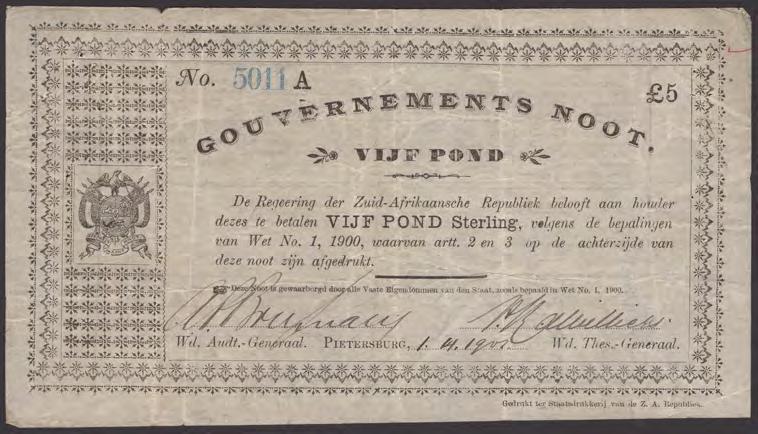 No. 5011 A
£5
GOUVERNEMENTS NOOT.
VIJF POND
De Regeering der Zuid-Afrikaansche Republiek belooft aan houder
dezes te betalen VIJF POND Sterling, volgens de bepalingen
van Wet No. 1, 1900, waarvan artt. 2 en 3 op de achterzijde van
deze noot zijn afgedrukt.
Deze Noot is gewaarborgd door alle Vaste Eigendommen van den Staat, zooals bepaald in Wet No. 1, 1900.
Wd. Audt.-Generaal. PIETERSBURG, 1. 4. 1901 Wd. Thes.-Generaal.
Gedrukt ter Staatsdrukkerij van de Z. A. Republiek.